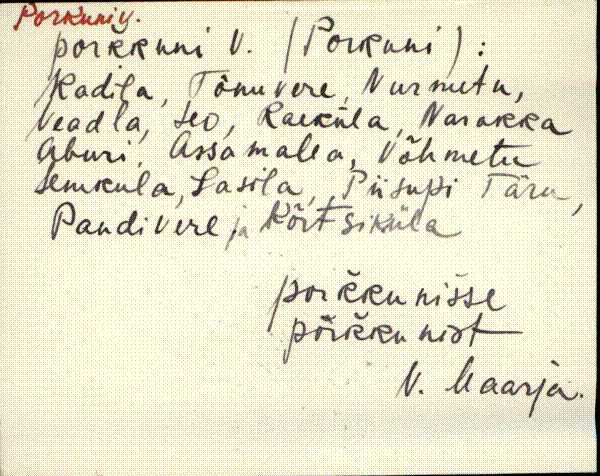 Porkuni v.
porkkuni V. (Porkuni):
Kadila, Tõnuvere, Nurmetu,
Veadla, Seo, Raeküla, Narakka
Aburi, Assamalla, Võhmetu
Semküla, Sasila, Piisupi Täru,
Pandivere ja Kõrtsiküla
porkkunisse
porkkunist
V. Maarja.